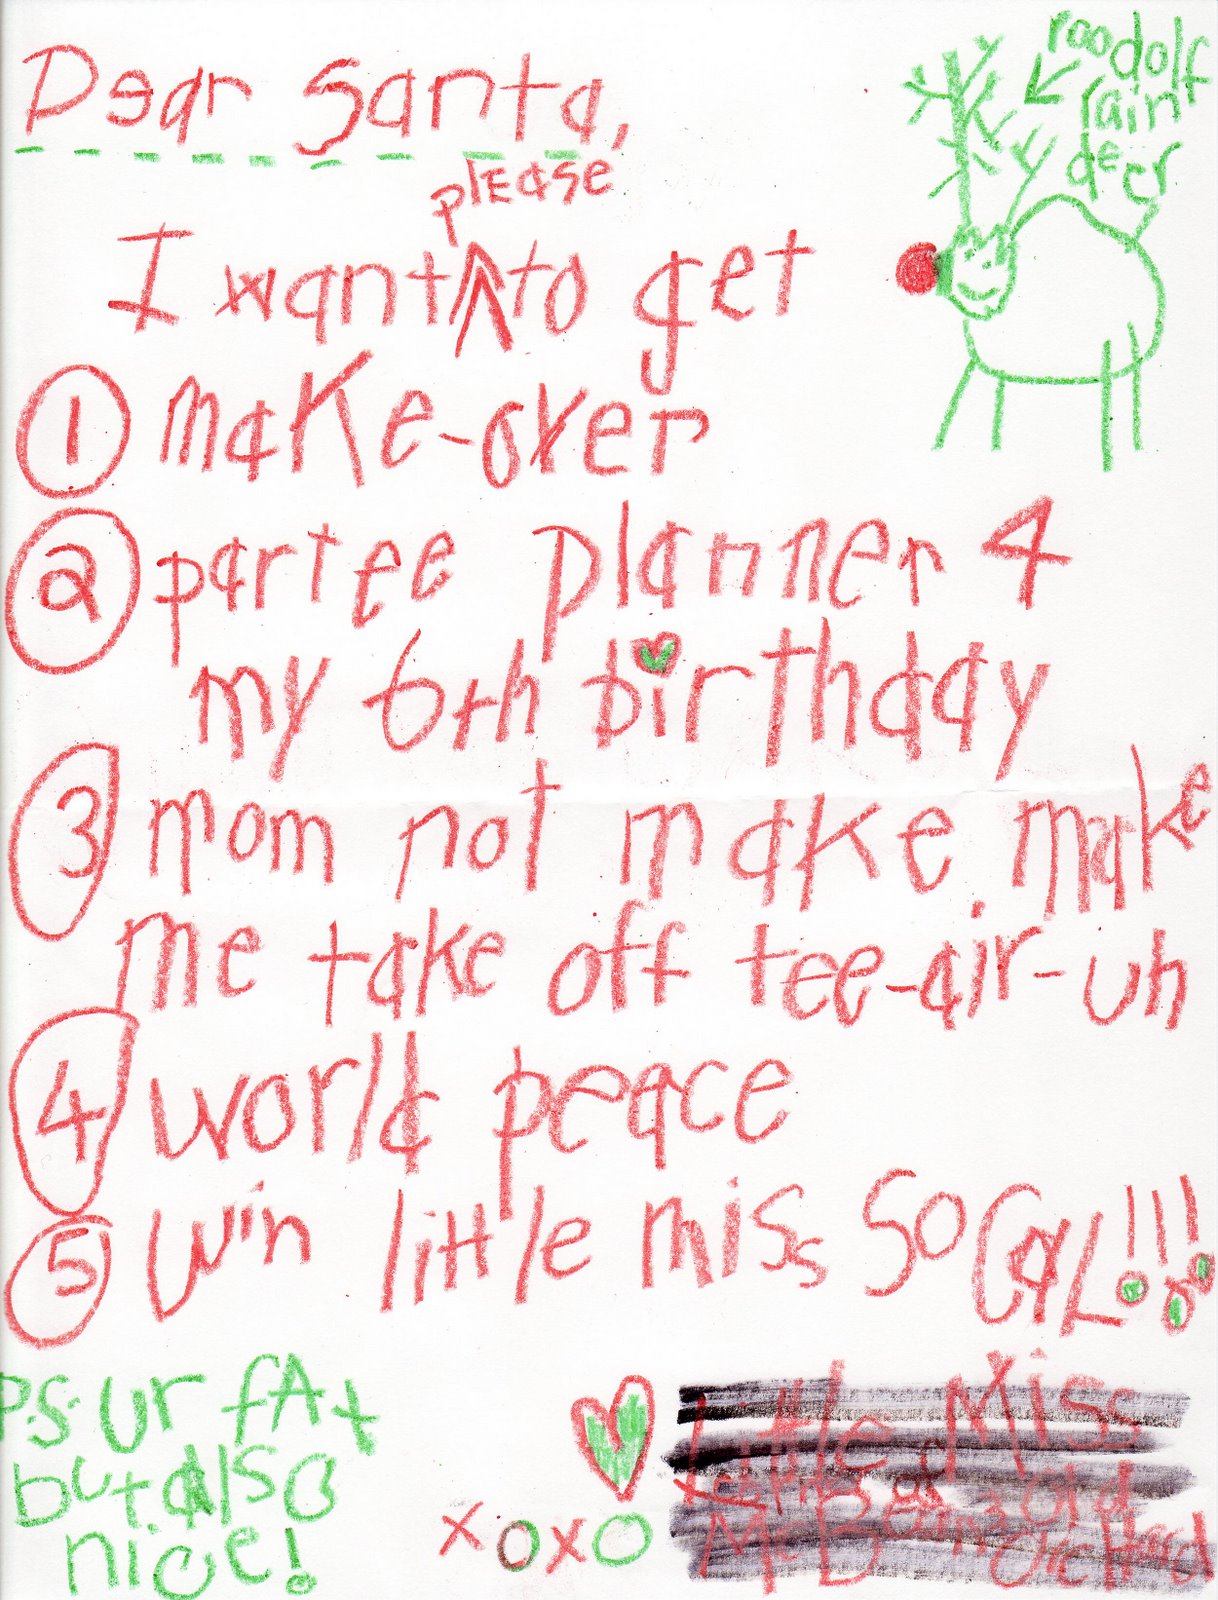 Dear Santa,
roodolf
rain
deer
please
I want ^ to get
1 make-over
2 partee planner 4
my 6th birthday
3 mom not make make
me take off tee-air-uh
4 world peace
5 win little miss SoCAL!!!
P.S. ur fAt
but also
nice!
xoxo
Little Miss